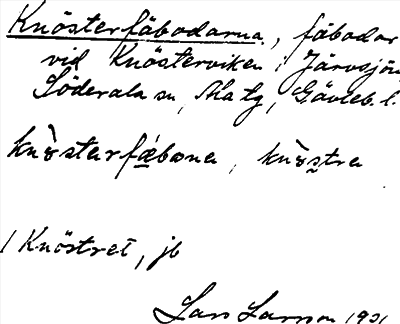 Knösterfäbodarna, fäbodar
vid Knösterviken i Järvsjön
Söderala sn, Ala tg, Gävleb. l.
knö̀starfæ̀bᴏna, knö̀stra
/ Knöstret, jb
Lars Larson 1931